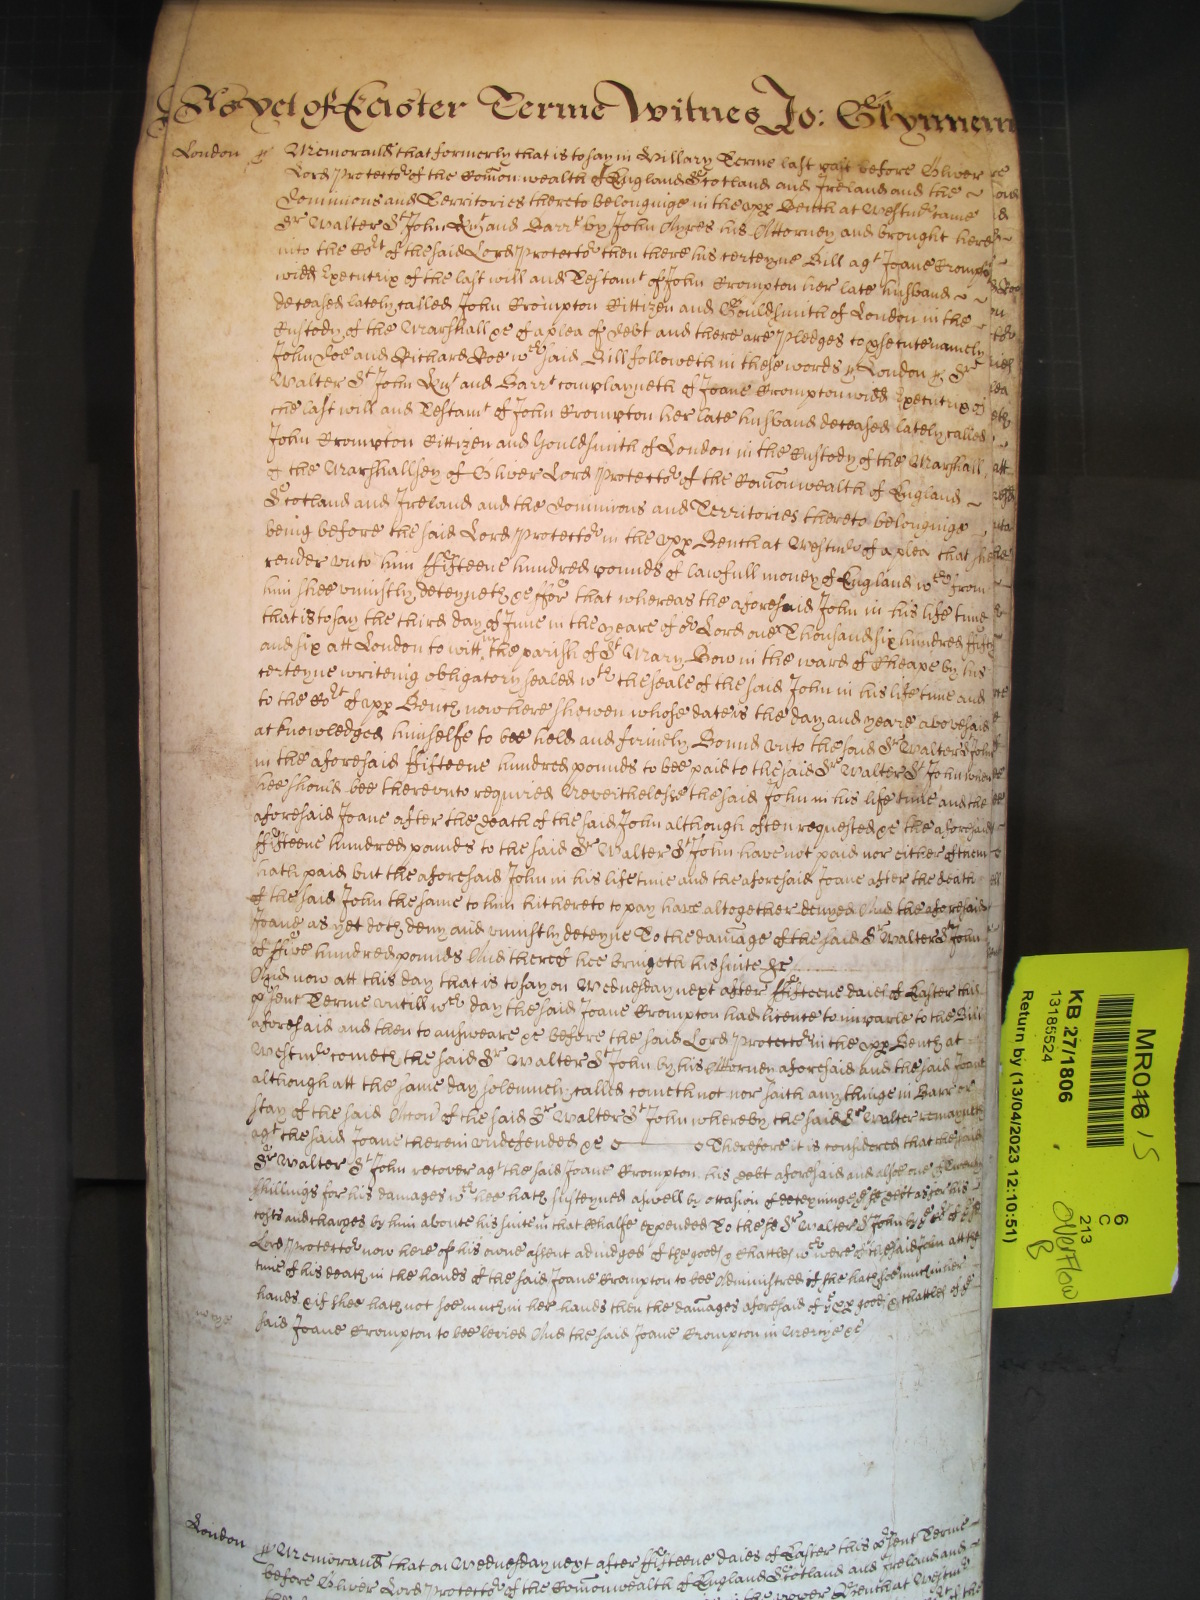 As yet of Easter Terme Witnes Jo: Glynne
London ss Memorand that formerly that is to say in Hillary Terme last past before Oliver
Lord Protector of the Comonwealth of England Scotland and Ireland and the
Dominions and Territories thereto belonginge in the upp Bench at Westmr came
Sr Walter St John Knt and Barrt by John Ayres his Attorney and brought here
into the Cort of the said Lord Protector then there his certeyne Bill agt Joane Crompton
widd Executrix of the last will and Testamt of John Crompton her late husband
deceased lately called John Crompton Cittizen and Gouldsmith of London in the
Custody of the Marshall &c of a plea of debt and there are Pledges to psecute namely
John Doe and Richard Roe wch said Bill followeth in these words ss London ss Sr
Walter St John Knt and Barrt complayneth of Joane Crompton widd Executrix of
the last will and Testamt of John Crompton her late husband deceased lately called
John Crompton Cittizen and Gouldsmith of London in the Custody of the Marshall
of the Marshallsey of Oliver Lord Protector of the Comonwealth of England
Scotland and Ireland and the Dominions and Territories thereto belonginge
being before the said Lord Protector in the upp Bench at Westmr of a plea that shee
render unto him ffifteene hundred pounds of lawfull money of England wch from
him shee uniustly deteyneth &c ffor that whereas the aforesaid John in his life time
that is to say the third day of June in the yeare of or Lord one Thousand six hundred fifty
and six att London to witt in the parish of St Mary Bow in the ward of Cheape by his
certeyne writeing obligatory sealed wth the seale of the said John in his life time and
to the Cort of upp Bench now here shewen whose date is the day and yeare abovesaid
acknowledged himselfe to bee held and firmely Bound unto the said Sr Walter St John
in the aforesaid ffifteene hundred pounds to bee paid to the said Sr Walter St John when
hee should bee thereunto required Neverthelesse the said John in his life time and the
aforesaid Joane after the death of the said John although often requested &c the aforesaid
ffifteene hundred pounds to the said Sr Walter St John have not paid nor either of them
hath paid but the aforesaid John in his life time and the aforesaid Joane after the death
of the said John the same to him hithereto to pay have altogether denyed And the aforesaid
Joane as yet doth deny and uniustly deteyne To the damage of the said Sr Walter St John
of ffive hundred pounds And thereof hee bringeth his suite &c
And now att this day that is to say on Wednesday next after ffifteene daies of Easter this
psent Terme untill wch day the said Joane Crompton had licence to imparle to the Bill
aforesaid and then to answeare &c before the said Lord Protector in the upp Bench at
Westmr cometh the said Sr Walter St John by his Attorney aforesaid And the said Joane
although att the same day solemnely called cometh not nor saith any thinge in Barr or
stay of the said Accon of the said Sr Walter St John whereby the said Sr Walter remayneth
agt the said Joane therein undefended &c Therefore it is considered that the said
Sr Walter St John recover agt the said Joane Crompton his debt aforesaid and alsoe one & Twenty
shillings for his damages wch hee hath susteyned aswell by occasion of deteyninge of the debt as for his
costs and charges by him about his suite in that behalfe expended To the sd Sr Walter St John by the Cort of the sd
Lord Protector now here of his owne assent adiudged of the goods & chattles wch were of the said John att the
time of his death in the hands of the said Joane Crompton to bee Administred if she hath soe much in her
hands & if shee hath not soe much in her hands then the damages aforesaid of the pp goods & chattles of the
said Joane Crompton to bee levied And the said Joane Crompton in Mercye &c
London ss Memorand that on Wednesday next after ffifteene daies of Easter this psent Terme
before Oliver Lord Protector of the Comonwealth of England Scotland and Ireland and
MR046 15
KB 27/1806
13185524
Return by (13/04/2023 12:10:51)
6
C
213
Overflow
B